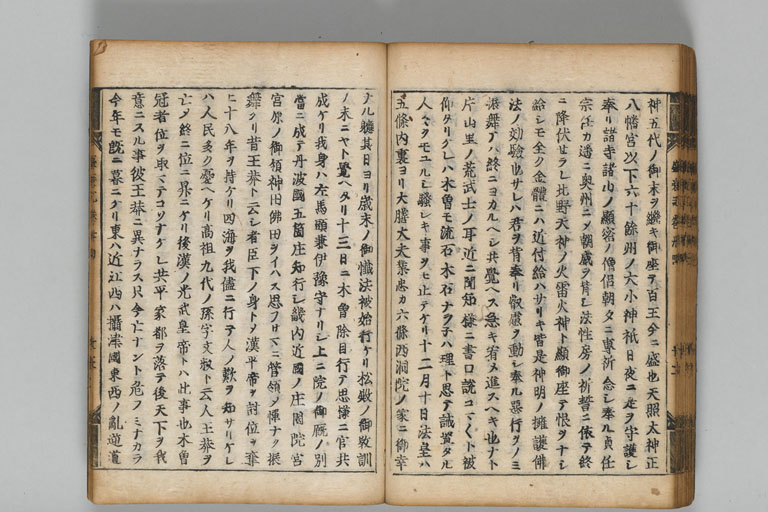 神五代ノ御末ヲ継キ御座テ百王今ニ盛也天照太神正
八幡宮以下六十餘州ノ大小神祇日夜ニ是ヲ守護シ
奉リ諸寺諸山ノ顕密ノ僧侶朝夕ニ専祈念シ奉ル貞任
宗任カ遇ニ奥州ニメ朝威ヲ背シ法性房ノ祈誓ニ依テ終
ニ降伏セラレ北野天神ノ火雷火神ト顕御座テ恨ヲナシ
給シモ全ク金體ニハ近付給ハサリキ皆是神明ノ擁護佛
法ノ効驗也サレハ君ヲ背奉リ叡慮ヲ動シ奉ル罪行ヲノミ
振舞テハ終ニヨカルヘシ共覺ヘス急キ宥メ進スヘキ也ナト
片山里ノ荒武士ノ耳近ニ聞知様ニ書口説コマ〱ト被
仰タリケレハ木曽モ流石木石ナラ子ハ理ト思テ誡置タル
人々ヲモユルシ騒シキ事ヲモ止テケリ十二月十日法皇ハ
五條内裏ヨリ大膳大夫業忠カ六條西洞院ノ家ニ御幸
ナル軈其日ヨリ歳末ノ御懺法被始行ケリ松殿ノ御教訓
ノ末ニヤト覺ヘタリ十三日ニ木曽除目行テ思様ニ官共
成ケリ我身ハ左馬頭兼伊豫守ナリシ上ニ院ノ御厩ノ別
當ニ成テ丹波國五箇庄知行シ畿内近國ノ庄園院宮
宮原ノ御領神田佛田ヲイハス思フサマニ管領メ憚ナク振
舞ケリ昔王莽ト云シ者臣下ノ身トメ漢平帝ヲ討位ヲ奪
ヒ十八年ヲ持ケリ四海ヲ我儘ニ行テ人ノ歎ヲ知サリケレ
ハ人民多ク憂ヘケリ高祖九代ノ孫字文叔ト云人王莽ヲ
亡メ終ニ位ニ昇ニケリ後漢ノ光武皇帝トハ此事也木曽
冠者位ヲ取マテコソナケレ共平家都ヲ落テ後天下ヲ我
意ニスル事彼王莽ニ異ナラス只今亡ナント危フミナカラ
今年モ既ニ暮ニケリ東ハ近江西ハ攝津國東西ノ乱逆道